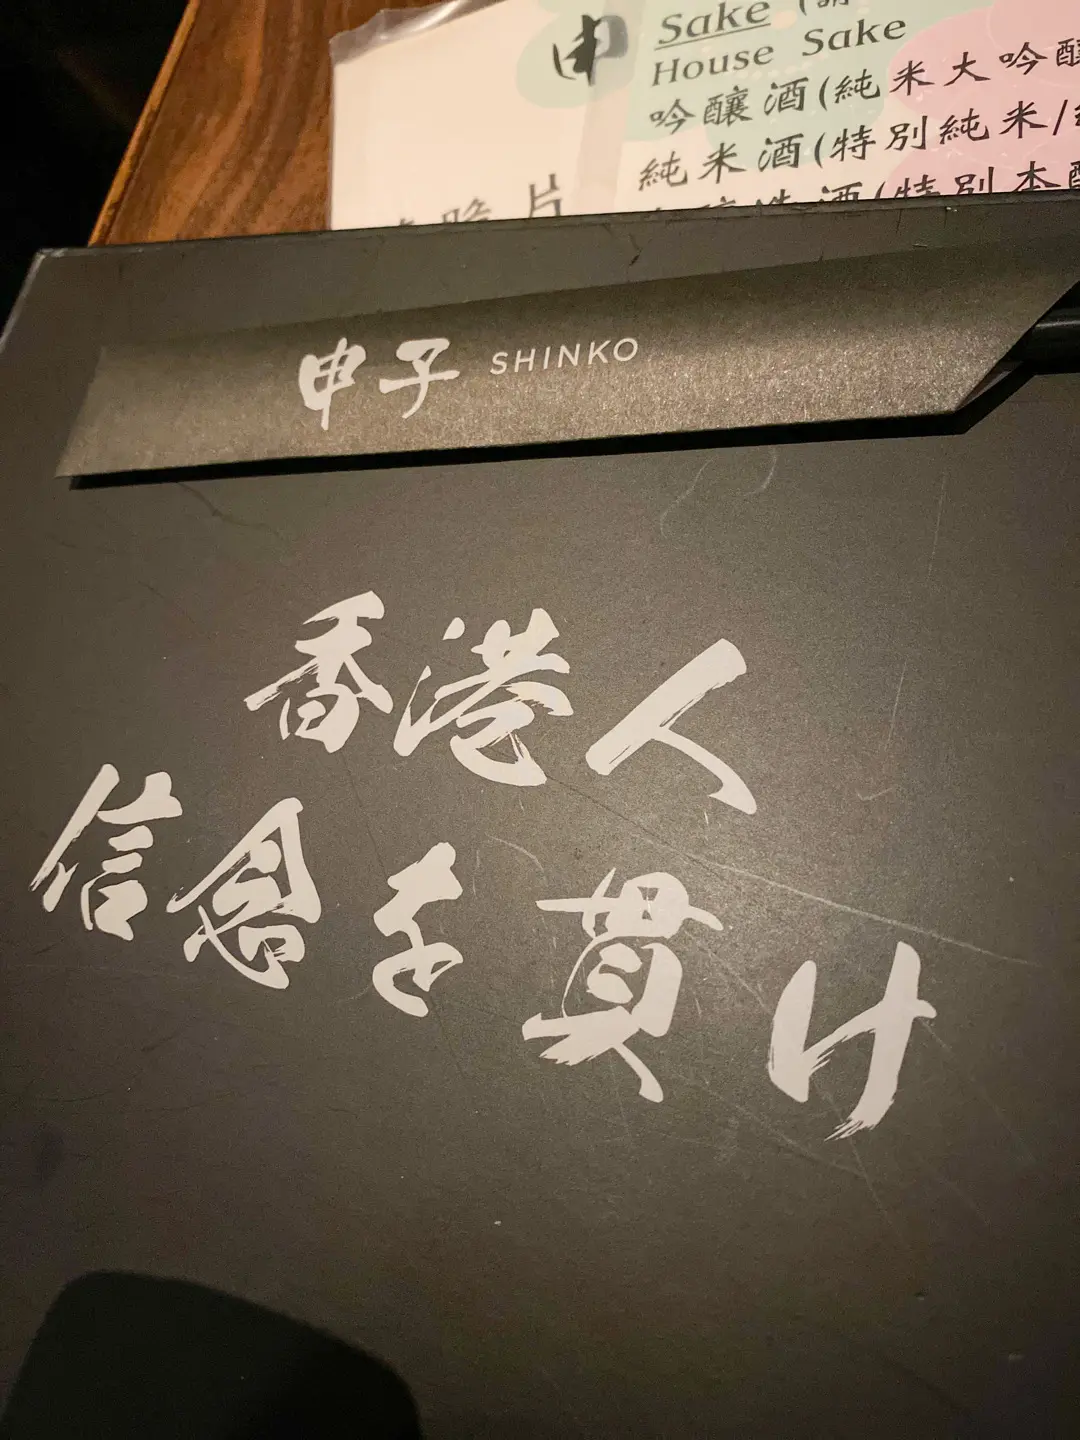 申
Sake
House Sake
吟醸酒(純米大吟醸
純米酒(特別純米/
酒(特別本醸
脆片
申子 SHINKO
香港人
信念を貫け